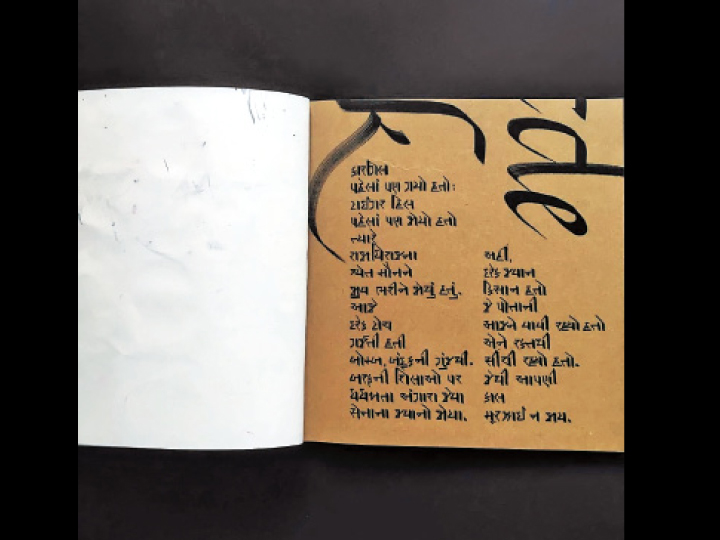 કારગિલ
પહેલાં પણ ગયો હતો:
ટાઈગર હિલ
પહેલાં પણ જોયો હતો
ત્યારે
શ્વેત મૌનને
ભરીને જોયું હતું.
આજે
દરેક ટોચ
ગર્જતી હતી
બોમ્બ, બંદુકની ગુંજથી.
બરફની શિલાઓ પર
ધધખતા અંગારા જેવા
સેનાના જવાનો જોયા.
અહીં,
દરેક જવાન
કિસાન હતો
જે પોતાની
આજને વાવી રહ્યો હતો
એને રક્તથી
સીંચી રહ્યો હતો.
જેથી આપણી
કાલ
મૂરઝાઈ ન જાય.